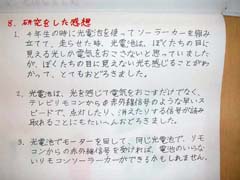 8. 研究をした感想
1. 4年生の時に光電池を使ってソーラーカーを組み
立てて、走らせた時、光電池は、ぼくたちの目に
見える光しか電気をおこさないと思っていました
が、ぼくたちの目に見えない光も感じることがわ
かって、とてもおどろきました。
2. 光電池は、光を感じて電気をおこすだけでなく、
テレビリモコンからの赤外線信号のような早いス
ピードで、点灯したり、消えたりする信号が読み
取れることにもたいへんおどろきました。
3. 光電池でモーターを回して、同じ光電池で、リモ
コンからの赤外線信号を受ければ、電池のいらな
いリモコンソーラーカーができるかもしれません。